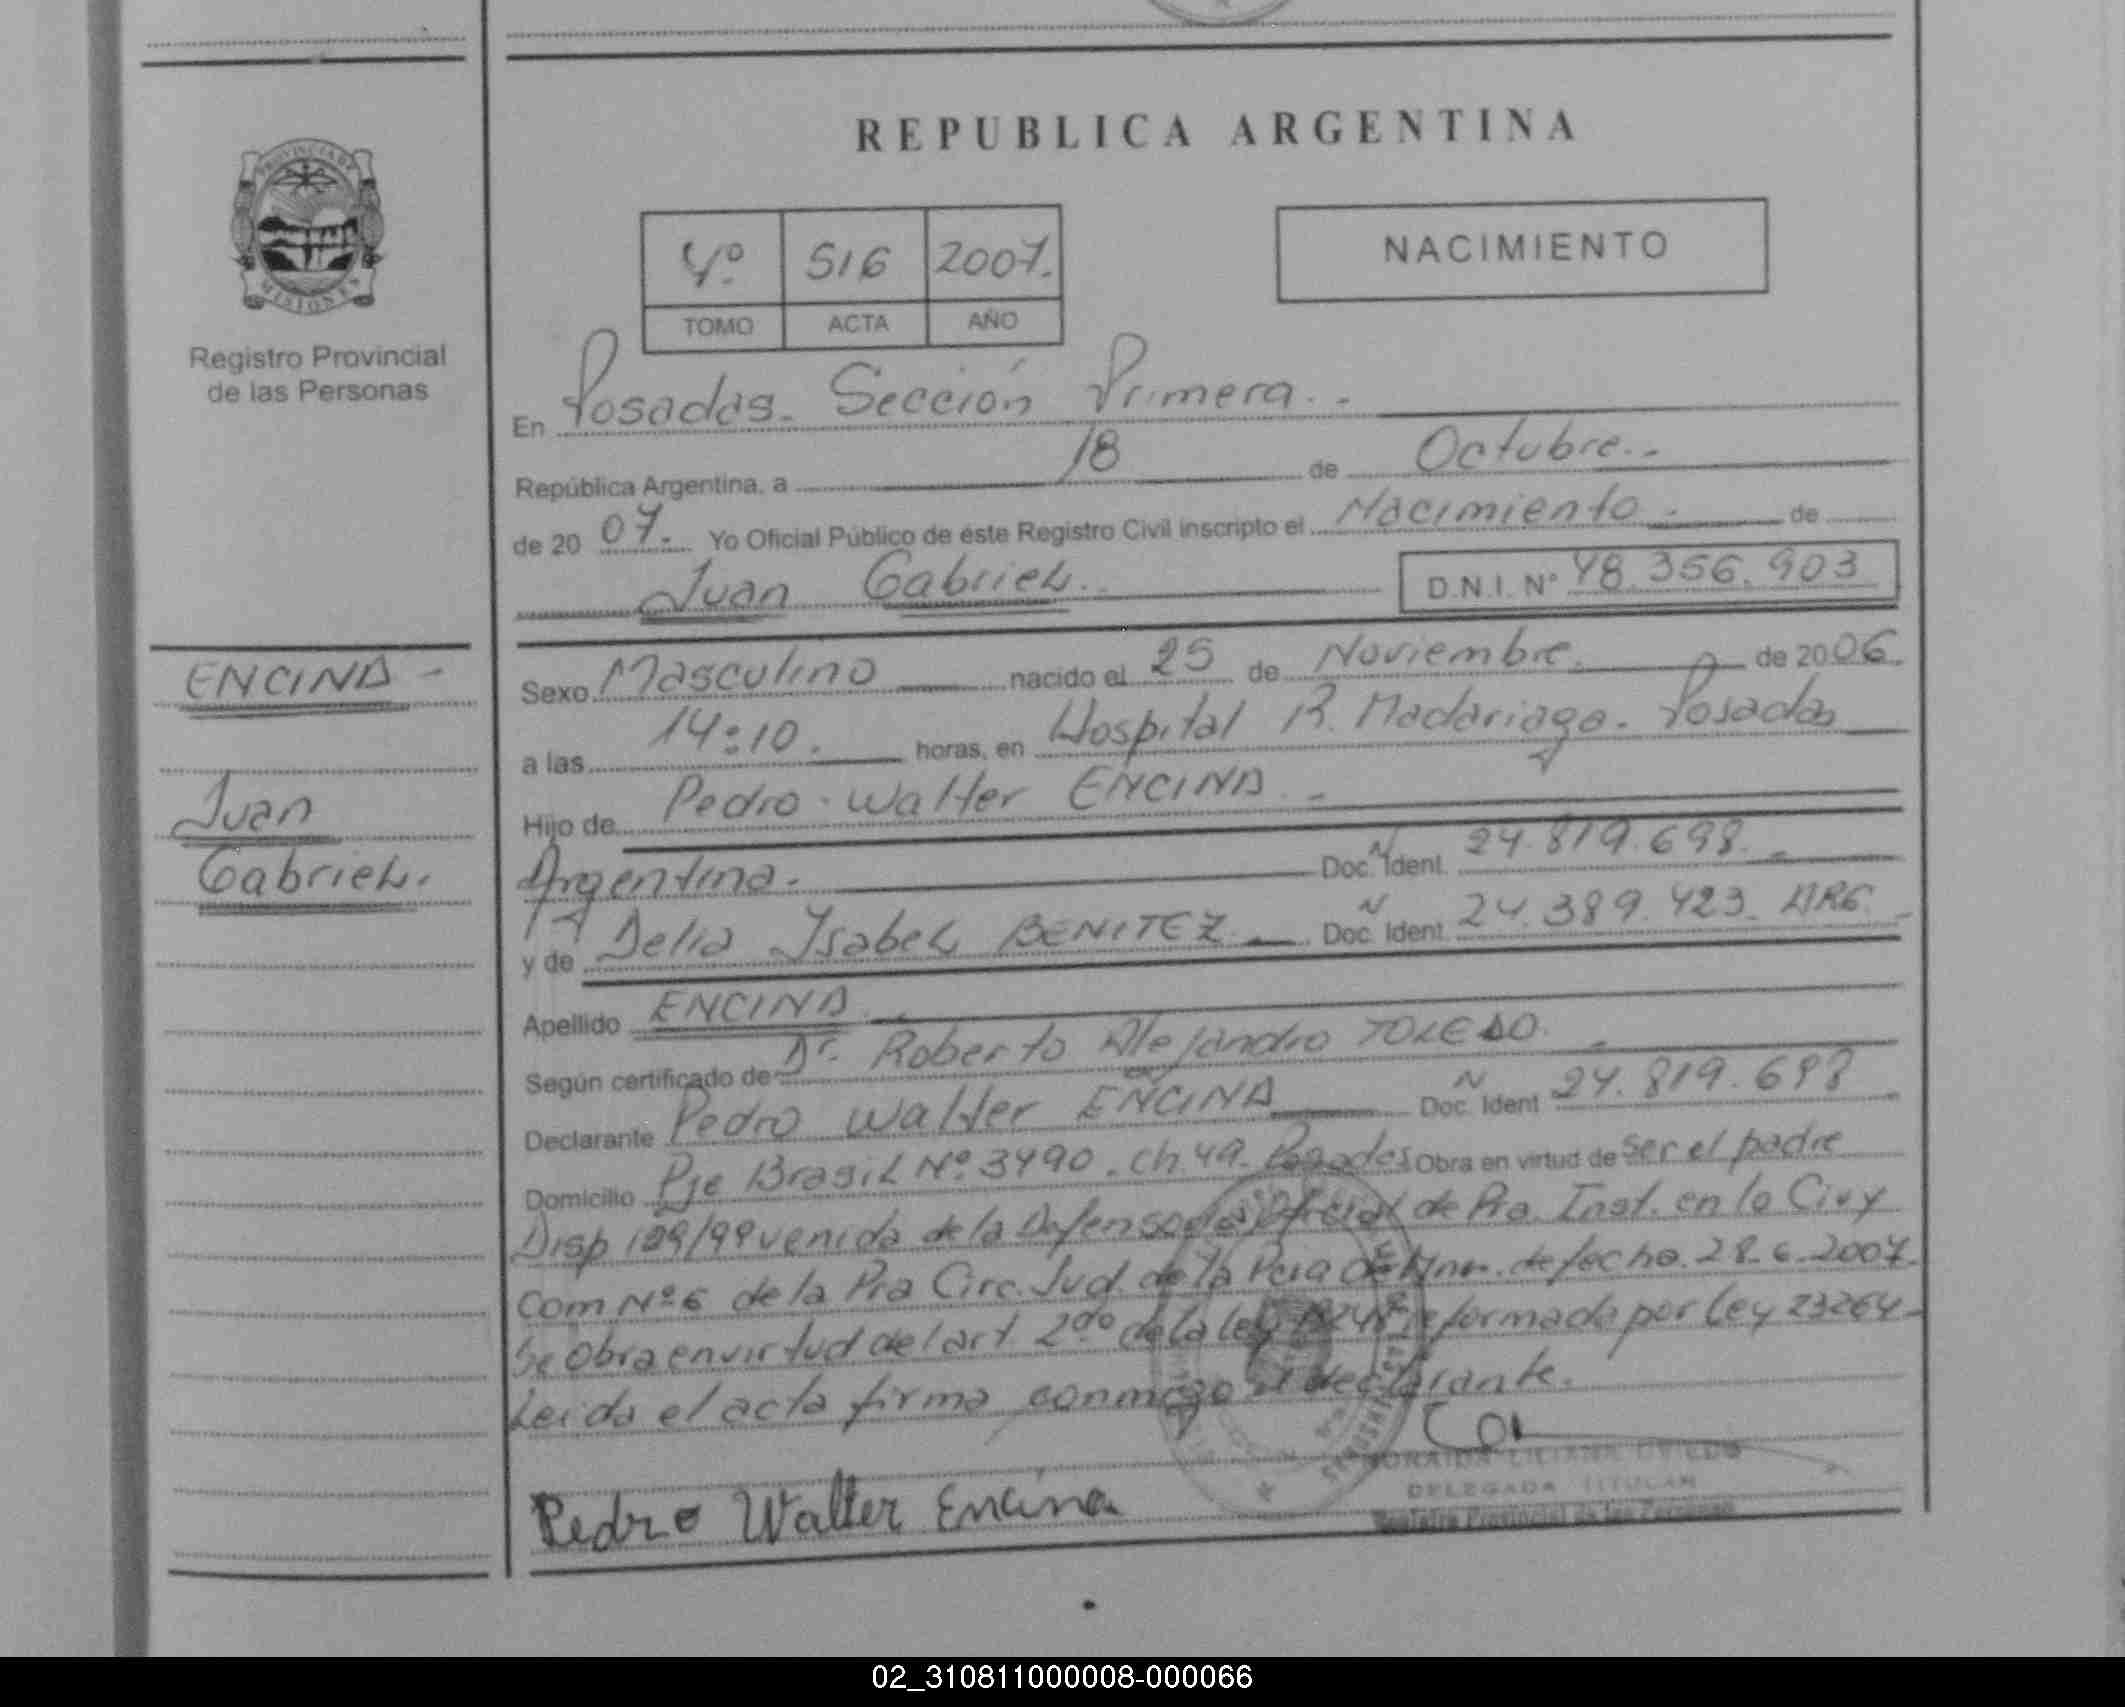 REPUBLICA ARGENTINA
PROVINCIA DE
MISIONES
Registro Provincial
de las Personas
4º. 516 2007.
TOMO ACTA AÑO
NACIMIENTO
En Posadas. Sección Primera..
República Argentina, a 18 de Octubre..
de 20 07. Yo Oficial Público de éste Registro Civil inscripto el Nacimiento. de
Juan Gabriel. D.N.I. Nº 48.356.903
ENCINA -
Juan
Gabriel.
Sexo Masculino nacido el 25 de Noviembre. de 2006.
a las 14:10. horas, en Hospital R. Madariaga. Posadas
Hijo de Pedro Walter ENCINA.
Argentina. Doc. Ident. 24.819.698.
y de Delia Isabel BENITEZ. Doc. Ident. 24.389.423. ARG.
Apellido ENCINA.
Según certificado de Dr. Roberto Alejandro TOLEDO.
Declarante Pedro Walter ENCINA Doc. Ident 24.819.698
Domicilio Pje Brasil Nº. 3490. ch 49. Posadas Obra en virtud de ser el padre
Disp 129/99 venida de la Defensoría Oficial de Pra. Inst. en lo Civ y
Com Nº 6 de la Pra Circ. Jud. de la Pcia de Mnes. de fecha. 28.6.2007.
Se Obra en virtud del art 2do de la ley reformada por ley 23264-
Leida el acta firma conmigo el declarante.
Pedro Walter Encina
LILIANA OVIEDO
DELEGADA TITULAR
Registro Provincial de las Personas
02_310811000008-000066